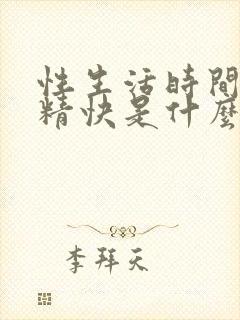 性生活時間
精快是什麼
李拜天